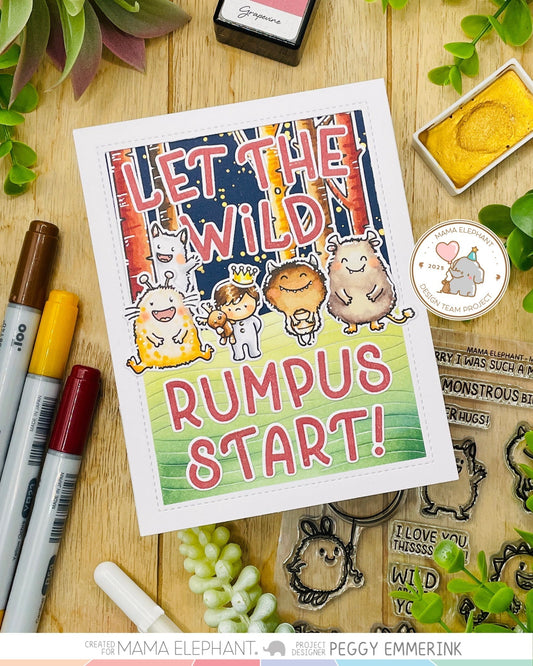 Grapevine
LET THE
WiLD
RUMPUS
START!
MAMA ELEPHANT
2025
DESIGN TEAM PROJECT
MAMA ELEPHANT
RRY I WAS SUCH A M
MONSTROUS BI
R HUGS!
I LOVE YOU,
THISSSS
WILD
YO
100
MADE IN JAPAN
CREATED FOR MAMA ELEPHANT PROJECT DESIGNER PEGGY EMMERINK